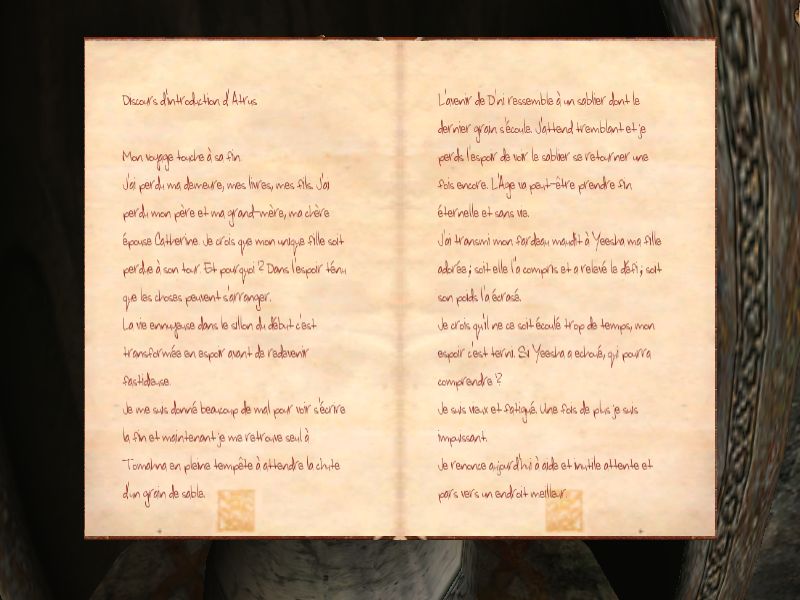 Discours d'introduction d'Atrus
Mon voyage touche à sa fin.
J'ai perdu ma demeure, mes livres, mes fils. J'ai
perdu mon père et ma grand-mère, ma chère
épouse Catherine. Je crois que mon unique fille soit
perdue à son tour. Et pourquoi ? Dans l'espoir ténu
que les choses peuvent s'arranger.
La vie ennuyeuse dans le sillon du début c'est
transformée en espoir avant de redevenir
fastidieuse.
Je me suis donné beaucoup de mal pour voir s'écrire
la fin et maintenant je me retrouve seul à
Tomahna en pleine tempête à attendre la chute
d'un grain de sable.
L'avenir de D'ni ressemble à un sablier dont le
dernier grain s'écoule. J'attend tremblant et je
perds l'espoir de voir le sablier se retourner une
fois encore. L'Âge va peut-être prendre fin
éternelle et sans vie.
J'ai transmi mon fardeau maudit à Yeesha ma fille
adorée ; soit elle l'a compris et a relevé le défi ; soit
son poids l'a écrasé.
Je crois qu'il ne ce soit écoulé trop de temps, mon
espoir c'est terni. Si Yeesha a echoué, qui pourra
comprendre ?
Je suis vieux et fatigué. Une fois de plus je suis
impuissant.
Je renonce aujourd'hui à aide et inutile attente et
pars vers un endroit meilleur.